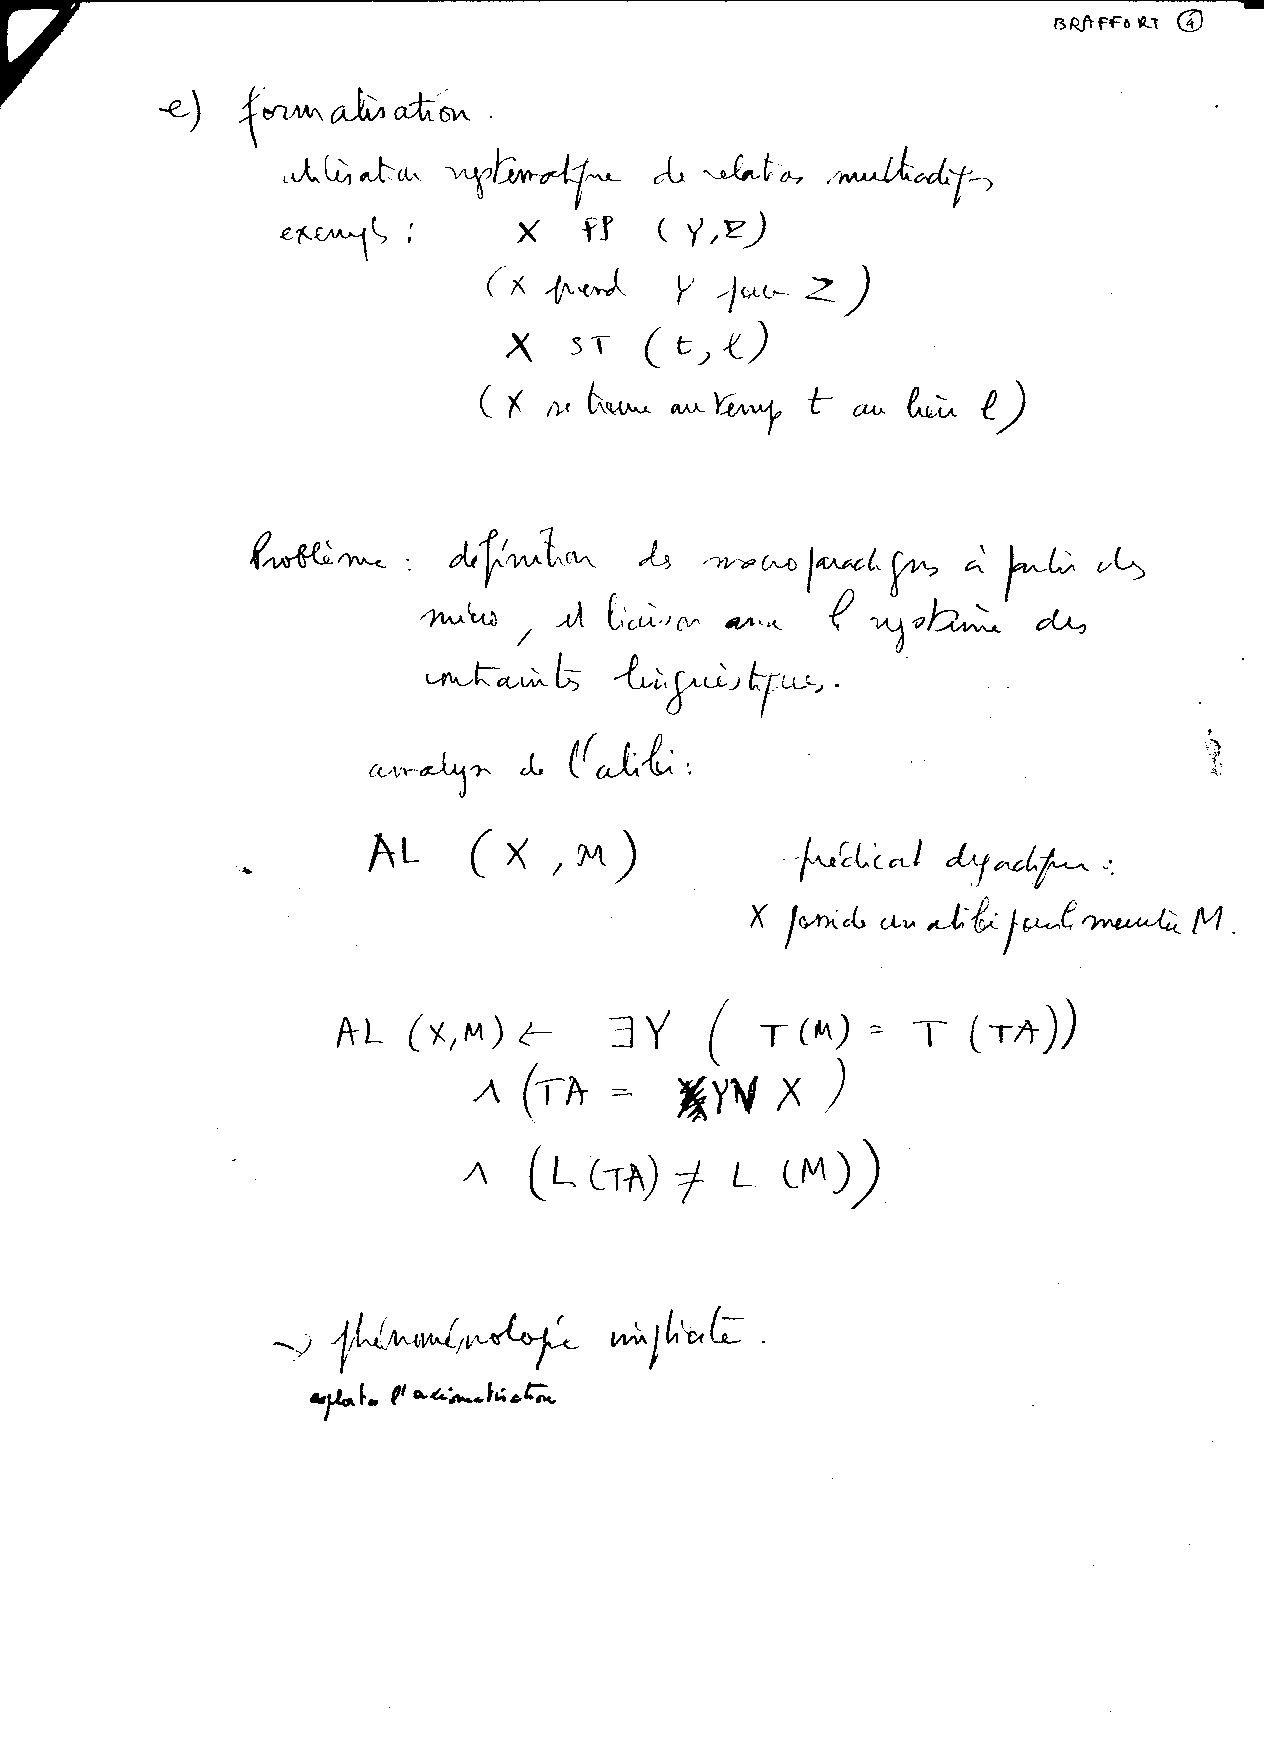 BRAFFORT ④
e) formalisation.
utilisation systématique de relations multiadiques
exemples :
X PP (Y, Z)
(X prend Y pour Z)
X ST (t, l)
(X se trouve au temps t au lieu l)
Problème : définition des macroparadigmes à partir des
micro, et liaison avec le système des
contraintes linguistiques.
analyse de l'alibi :
AL (X, M) prédicat dyadique :
X possède un alibi pour le meurtre M.
AL (X, M) ← ∃Y ( T(M) = T (TA))
∧ (TA = YN X )
∧ (L(TA) ≠ L (M))
→ phénoménologie implicite.
l'axiomatisation